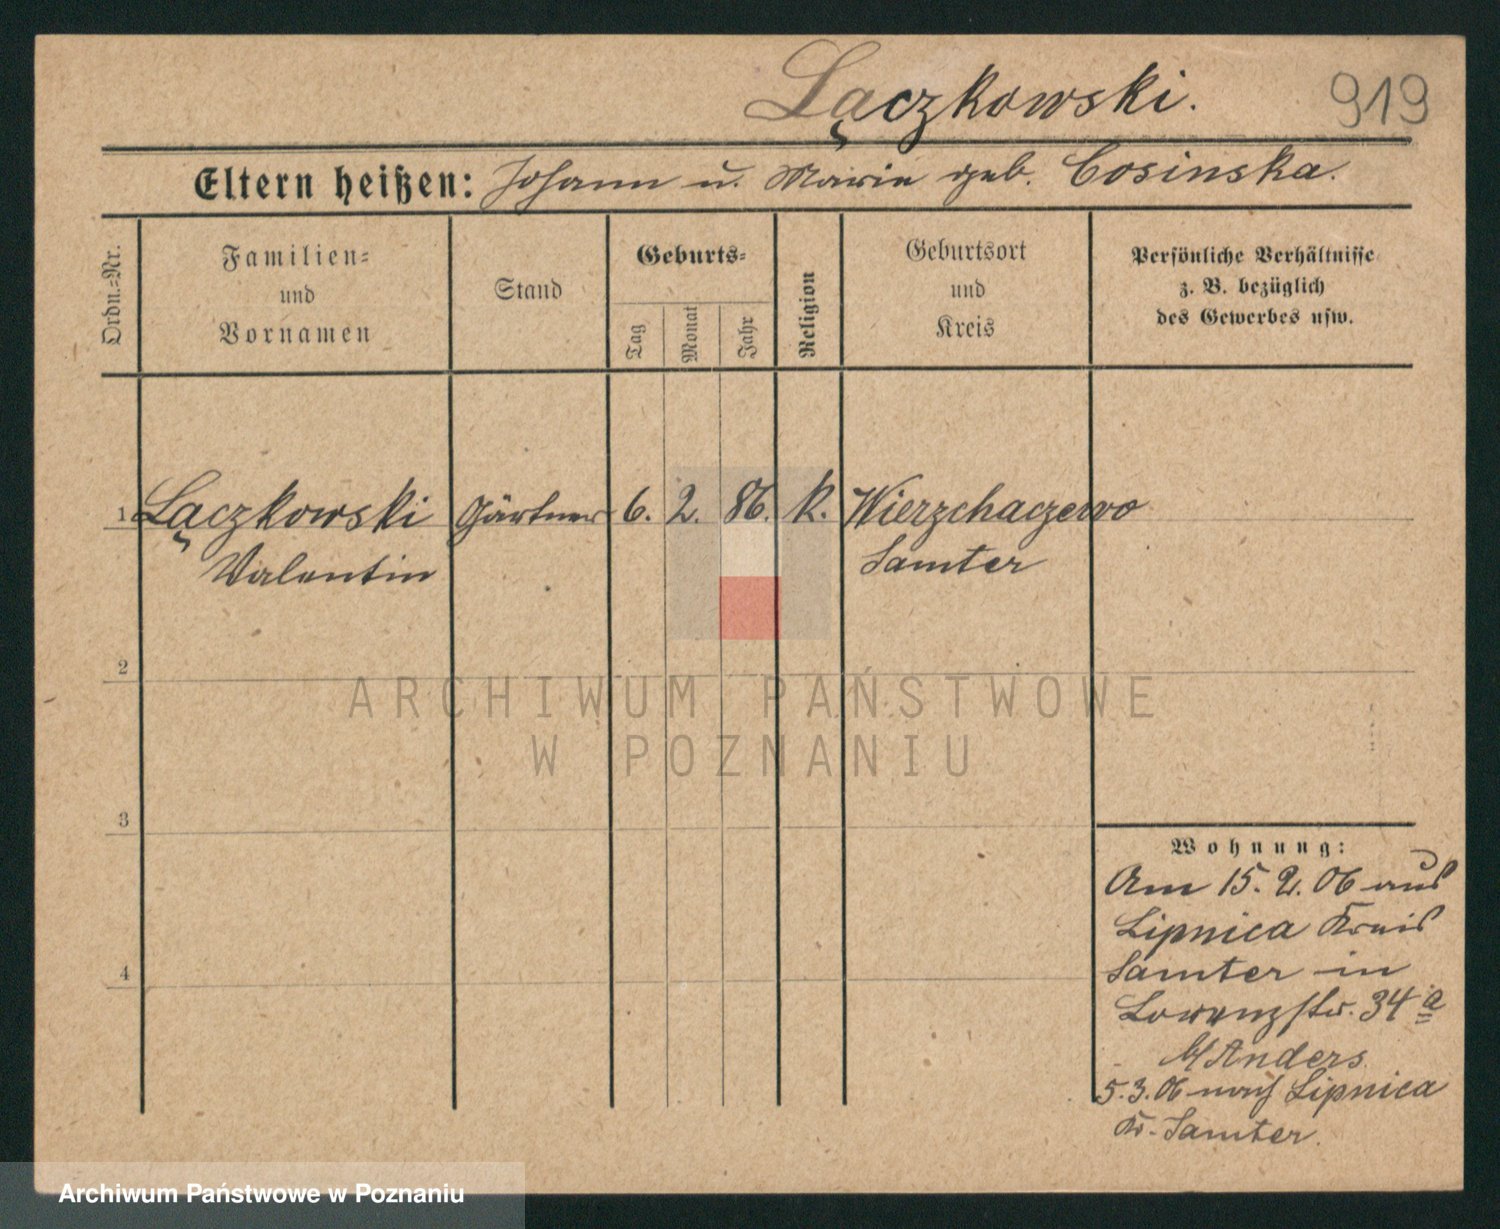 Łączkowski.
919
Eltern heißen: Johann u. Marie geb. Cosinska.
Ordn.-Nr.
Familien-
und
Vornamen
Stand
Geburts-
Tag
Monat
Jahr
Religion
Geburtsort
und
Kreis
Persönliche Verhältnisse
z. B. bezüglich
des Gewerbes usw.
1 Łączkowski Gärtner 6. 2. 86. k. Wierzchaczewo
Valentin Samter
2
ARCHIWUM PAŃSTWOWE
W POZNANIU
3
Wohnung:
Am 15. 2. 06 aus
Lipnica Kreis
Samter in
Lorenzstr. 34 a
b/ Anders
5. 3. 06 nach Lipnica
Kr. Samter.
4
Archiwum Państwowe w Poznaniu